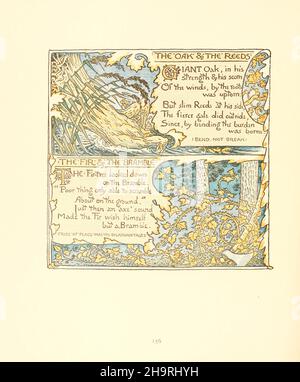 THE OAK & THE REEDS
GIANT Oak, in his
strength & his scorn
Of the winds, by the roots
was uptorn:
But slim Reeds at his side,
The fierce gale did outride,
Since, by bending the burden
was borne.
(BEND, NOT BREAK)
THE FIR & THE BRAMBLE
THE Fir-tree looked down
on the Bramble.
"Poor thing, only able to scramble
About on the ground."
Just then an axe' sound
Made the Fir wish himself
but a Bramble.
(PRIDE OF PLACE HAS ITS DISADVANTAGES)
156
alamy
Image ID: 2H9RHYH
www.alamy.com